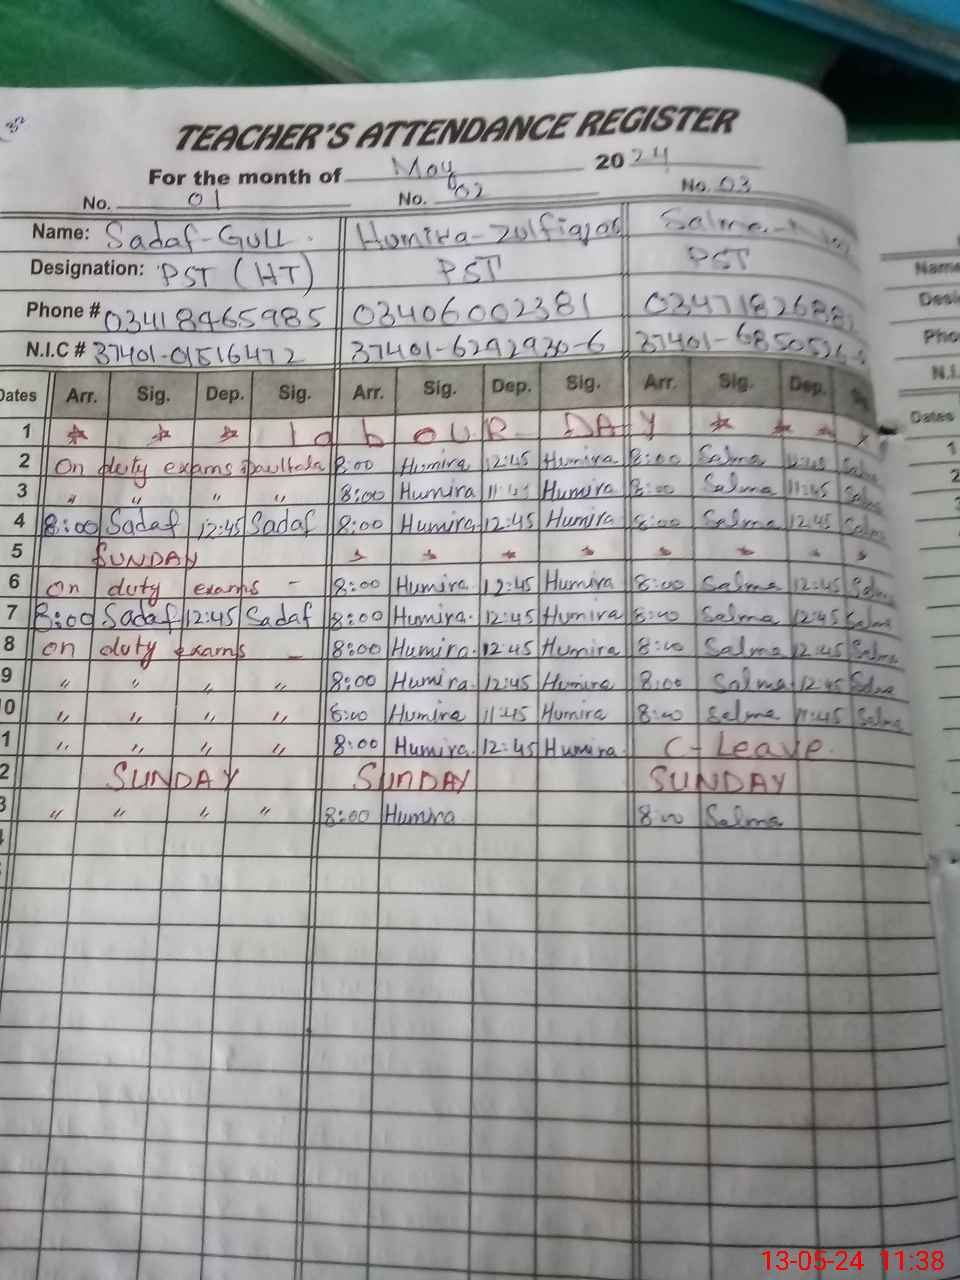 TEACHER'S ATTENDANCE REGISTER
For the month of May 2024
No. 01 No. 02 No. 03
Name: Sadaf-Gull. Humira-Zulfiqar Salma-
Designation: PST (HT) PST PST
Phone # 03418965985 03406002381
N.I.C # 37401-01516472 37401-6292930-6 37401-
Dates Arr. Sig. Dep. Sig. Arr. Sig. Dep. Sig. Arr. Sig. Dep.
1 labOUR DAY
2 On duty exams 8:00 Humira 12:45 Humira 8:00 Salma 12:45 Salma
3 " " " " 8:00 Humira 11:45 Humira 8:00 Salma 11:45 Salma
4 8:00 Sadaf 12:45 Sadaf 8:00 Humira 12:45 Humira 8:00 Salma 12:45 Salma
5 SUNDAY
6 On duty exams - 8:00 Humira 12:45 Humira 8:00 Salma 12:45 Salma
7 8:00 Sadaf 12:45 Sadaf 8:00 Humira. 12:45 Humira 8:00 Salma 12:45 Salma
8 on duty exams - 8:00 Humira. 12:45 Humira 8:00 Salma 12:45 Salma
9 " " " " 8:00 Humira. 12:45 Humira 8:00 Salma 12:45 Salma
0 " " " " 8:00 Humira 11:45 Humira 8:00 Salma 11:45 Salma
1 " " " " 8:00 Humira. 12:45 Humira. C-Leave.
2 SUNDAY SUNDAY SUNDAY
3 " " " " 8:00 Humira 8:00 Salma
Name
Desi
Pho
N.I.
Dates
1
2
13-05-24 11:38